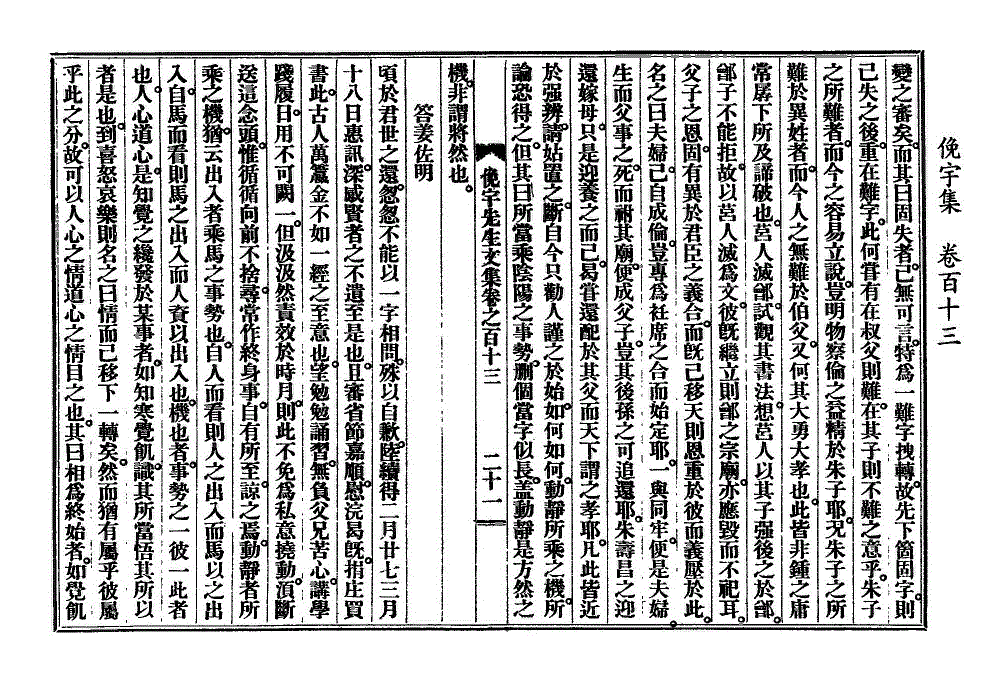 俛宇集　卷百十三
變之審矣而其曰固失者己無可言特爲一難字拽轉故先下箇固字則
己失之後重在難字此何嘗有在叔父則難在其子則不難之意乎朱子
之所難者而今之容易立說豈明物察倫之益精於朱子耶况朱子之所
難於異姓者而今人之無難於伯父又何其大勇大孝也此皆非鍾之庸
常孱下所及諦破也莒人滅鄫試觀其書法想莒人以其子强後之於鄫
鄫子不能拒故以莒人滅爲文彼旣繼立則鄫之宗廟亦應毀而不祀耳
父子之恩固有異於君臣之義合而旣己移天則恩重於彼而義厭於此
名之曰夫婦己自成倫豈專爲袵席之合而始定耶一與同牢便是夫婦
生而父事之死而祔其廟便成父子豈其後孫之可追還耶朱壽昌之迎
還嫁母只是迎養之而己曷嘗還配於其父而天下謂之孝耶凡此皆近
於强辨請姑置之斷自今只勸人謹之於始如何如何動靜所乘之機所
論恐得之但其曰所當乘陰陽之事勢刪個當字似長盖動靜是方然之
俛宇先生文集卷之百十三　二十一
機非謂將然也
答姜佐明
頃於君世之還怱怱不能以一字相問殊以自歉陸續得二月廿七三月
十八日惠訊深感賢者之不遺至是也且審省節嘉順慰浣曷旣捐庄買
書此古人萬籯金不如一經之至意也望勉勉誦習無負父兄苦心講學
踐履日用不可闕一但汲汲然責效於時月則此不免爲私意撓動湏斷
送這念頭惟循循向前不捨尋常作終身事自有所至諒之焉動靜者所
乘之機猶云出入者乘馬之事勢也自人而看則人之出入而馬以之出
入自馬而看則馬之出入而人資以出入也機也者事勢之一彼一此者
也人心道心是知覺之纔發於某事者如知寒覺飢識其所當悟其所以
者是也到喜怒哀樂則名之曰情而己移下一轉矣然而猶有屬乎彼屬
乎此之分故可以人心之情道心之情目之也其曰相爲終始者如覺飢